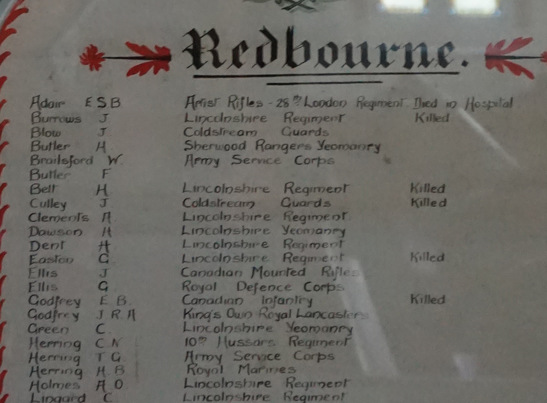 Redbourne.
Adair E S B Artist Rifles - 28th London Regiment Died in Hospital
Burrows J Lincolnshire Regiment Killed
Blow J Coldstream Guards
Butler H Sherwood Rangers Yeomanry
Brailsford W. Army Service Corps
Butler F
Bett H Lincolnshire Regiment Killed
Culley J Coldstream Guards Killed
Clements A Lincolnshire Regiment
Dawson H Lincolnshire Yeomanry
Dent H Lincolnshire Regiment
Easton G Lincolnshire Regiment Killed
Ellis J Canadian Mounted Rifles
Ellis G Royal Defence Corps
Godfrey E B. Canadian Infantry Killed
Godfrey J R A King's Own Royal Lancasters
Green C. Lincolnshire Yeomanry
Herring C N 10th Hussars Regiment
Herring T G Army Service Corps
Herring H B Royal Marines
Holmes A O Lincolnshire Regiment
Lingard C Lincolnshire Regiment